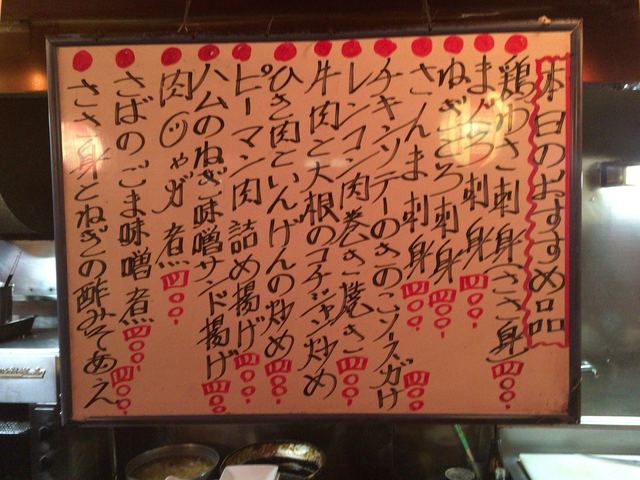 本日のおすすめ品
鶏わさ刺身(ささ身)四〇〇.
まぐろ刺身四〇〇.
ねぎとろ刺身四〇〇.
さんま刺身四〇〇.
チキンソテーのきのこソースがけ四〇〇.
レンコン肉巻き焼き四〇〇.
牛肉と大根のコチジャン炒め
ひき肉といんげんの炒め四〇〇.
ピーマン肉詰め揚げ四〇〇.
ハムのねぎ味噌サンド揚げ四〇〇
肉じゃが煮四〇〇.
さばのごま味噌煮四〇〇.
ささ身とねぎの酢みそあえ四〇〇.